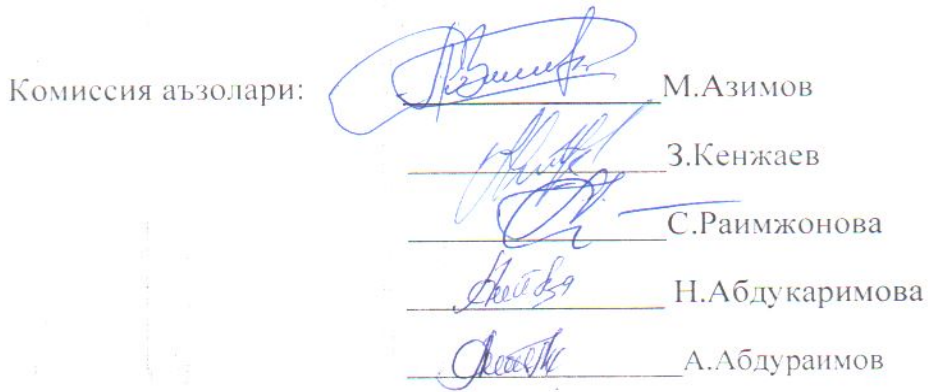 Комиссия аъзолари: М.Азимов
З.Кенжаев
С.Раимжонова
Н.Абдукаримова
А.Абдураимов